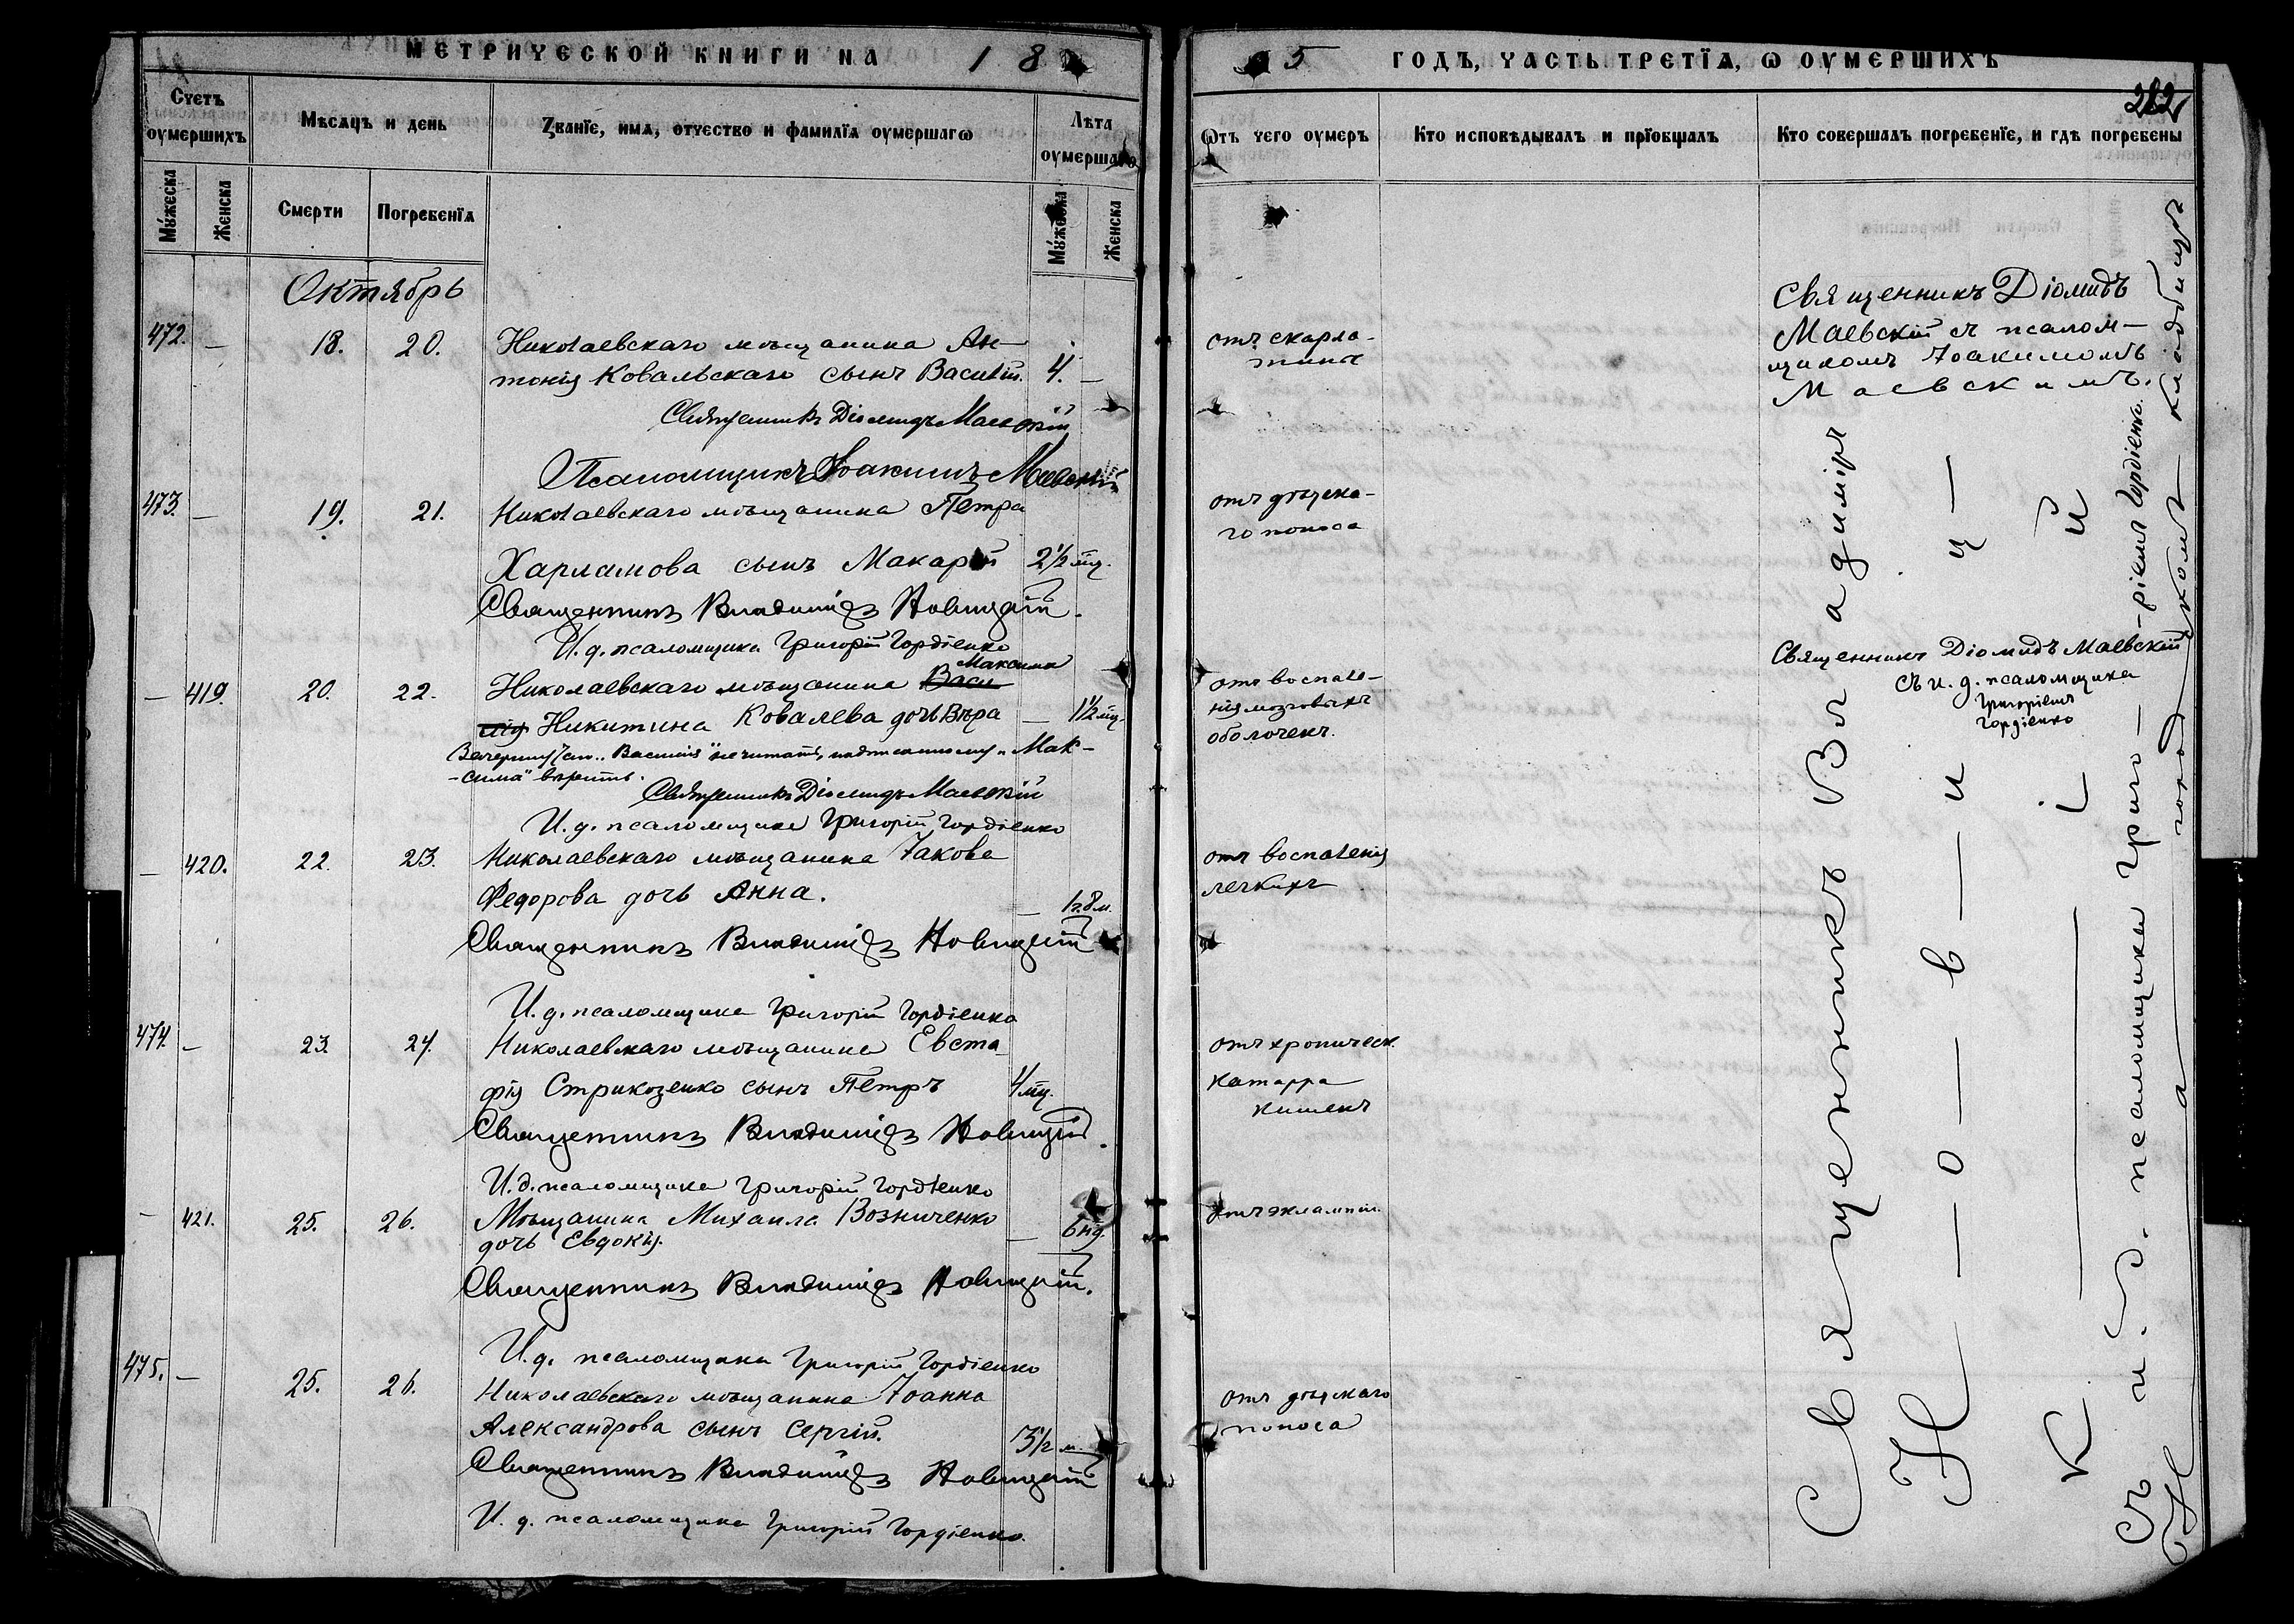 МЕТРИЧЕСКОЙ КНИГИ НА 1 8
Счетъ оумершихъ
Мѣсяцъ и день
Званїе, имя, отчество и фамилїя оумершагѡ
Лѣта оумершагѡ
Мужеска
Женска
Смерти
Погребенїя
Мужеска
Женска
Октябрь
472. — 18. 20. Николаевскаго мѣщанина Ан-
тонія Ковальскаго сынъ Василій. 4. —
Священникъ Діомидъ Маевскій
Псаломщикъ Іоакимъ Маевскій
473. — 19. 21. Николаевскаго мѣщанина Петра
Харламова сынъ Макарій 2½ мц.
Священникъ Владиміръ Новицкій.
И. д. псаломщика Григорій Гордіенко
Максима
— 419. 20. 22. Николаевскаго мѣщанина Васи
лія Никитина Ковалева дочь Вѣра — 1½ мц.
Зачеркнутому „Василія" не читать, надписанному „Мак-
-сима" вѣрить.
Священникъ Діомидъ Маевскій
И. д. псаломщика Григорій Гордіенко
— 420. 22. 23. Николаевскаго мѣщанина Іакова
Федорова дочь Анна. — 1г.8м.
Священникъ Владиміръ Новицкій
И. д. псаломщика Григорій Гордіенко
474. — 23. 24. Николаевскаго мѣщанина Евста-
фія Стрикозенко сынъ Петръ 4 мц.
Священникъ Владиміръ Новицкій.
И. д. псаломщика Григорій Гордіенко
— 421. 25. 26. Мѣщанина Михаила Возниченко
дочь Евдокія. — 6 нд.
Священникъ Владиміръ Новицкій.
И. д. псаломщика Григорій Гордіенко
475. — 25. 26. Николаевскаго мѣщанина Іоанна
Александрова сынъ Сергій. 3½ м.
Священникъ Владиміръ Новицкій
И. д. псаломщика Григорій Гордіенко.
5 ГОДЪ, ЧАСТЬ ТРЕТЇЯ, Ѡ ОУМЕРШИХЪ
282
Ѿтъ чего оумеръ
Кто исповѣдывалъ и прїобщалъ
Кто совершалъ погребенїе, и гдѣ погребены
отъ скарла-
тины
отъ дѣтска-
го поноса
отъ воспале-
нія мозговыхъ
оболочекъ.
отъ воспаленія
легкихъ
отъ хроническ.
катарра
кишекъ
отъ эклампсіи.
отъ дѣтскаго
поноса
Священникъ Діомидъ
Маевскій съ псалом-
щикомъ Іоакимомъ
Маевскимъ.
Священникъ Діомидъ Маевскій
съ и. д. псаломщика
Григоріемъ
Гордіенко
Священникъ Владиміръ
Н—о—в—и—ц—
к і й
съ и. д. псаломщика Григо—ріемъ Гордіенко.
На городскомъ кладбищѣ